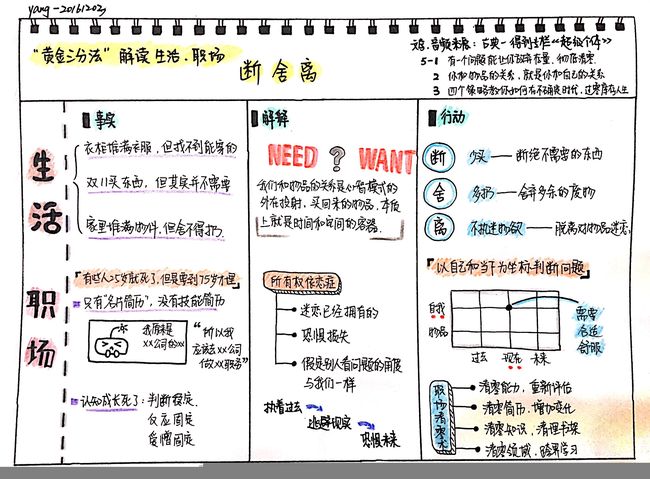 yang-20161203
"黄金三分法" 解读 生活、职场
断舍离
文字、音频来源：古典-得到专栏《超级个体》
5-1 有一个问题能让你放弃存量、彻底清零
2 你和物品的关系，就是你和自己的关系
3 四个策略教你如何在不确定时代，过零库存人生
事实
解释
行动
生活
衣柜堆满衣服，但找不到能穿的
双11买东西，但其实并不需要
家里堆满物件，但舍不得扔
NEED ? WANT
我们和物品的关系是心智模式的
外在投射，买回来的物品，本质
上就是时间和空间的容器
断 少买——断绝不需要的东西
舍 多扔——舍弃多余的废物
离 不执迷物欲——脱离对物品迷恋
职场
有些人25岁就死了，但是要到75岁才埋
只有"名片简历"，没有技能简历
我原来是
XX公司的XX
"所以我
应该去XX公司
做XX职务"
认知成长死了：判断固定
反应固定
爱憎固定
所有权依恋症
迷恋已经拥有的
恐惧损失
假定别人看问题的角度
与我们一样
执着过去
逃避现实
恐惧未来
以自己和当下为坐标判断问题
自我
物品
过去 现在 未来
需要
合适
舒服
职场清零
清零能力，重新评估
清零简历，增加变化
清零知识，清理书架
清零领域，跨界学习